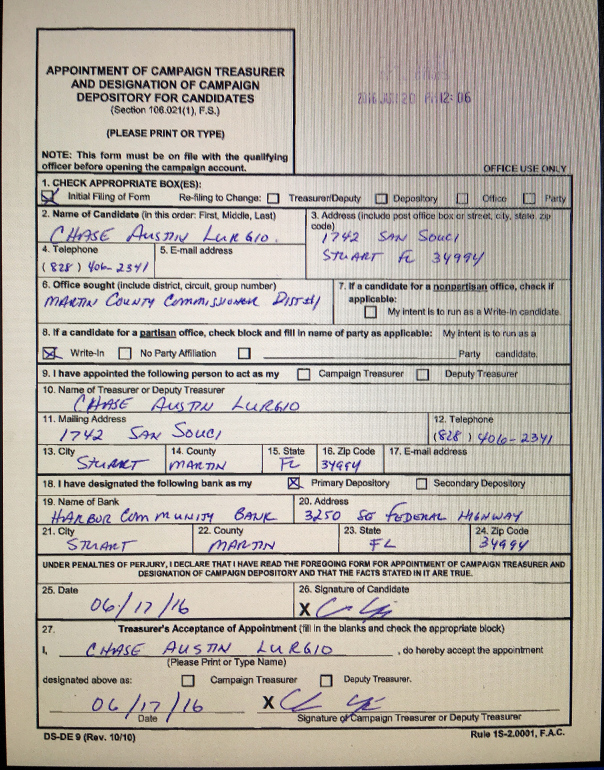 APPOINTMENT OF CAMPAIGN TREASURER
AND DESIGNATION OF CAMPAIGN
DEPOSITORY FOR CANDIDATES
(Section 106.021(1), F.S.)
(PLEASE PRINT OR TYPE)
NOTE: This form must be on file with the qualifying
officer before opening the campaign account.
2016 JUN 20 PM 12:06
OFFICE USE ONLY
1. CHECK APPROPRIATE BOX(ES):
Initial Filing of Form Re-filing to Change: Treasurer/Deputy Depository Office Party
2. Name of Candidate (in this order: First, Middle, Last)
CHASE AUSTIN LURGIO
3. Address (include post office box or street, city, state, zip
code)
1742 SAN SOUCI
STUART FL 34994
4. Telephone
(828) 406-2341
5. E-mail address
6. Office sought (include district, circuit, group number)
MARTIN COUNTY COMMISSIONER DIST #1
7. If a candidate for a nonpartisan office, check if
applicable:
My intent is to run as a Write-In candidate.
8. If a candidate for a partisan office, check block and fill in name of party as applicable: My intent is to run as a
Write-In No Party Affiliation Party candidate.
9. I have appointed the following person to act as my Campaign Treasurer Deputy Treasurer
10. Name of Treasurer or Deputy Treasurer
CHASE AUSTIN LURGIO
11. Mailing Address
1742 SAN SOUCI
12. Telephone
(828) 406-2341
13. City
STUART
14. County
MARTIN
15. State
FL
16. Zip Code
34994
17. E-mail address
18. I have designated the following bank as my Primary Depository Secondary Depository
19. Name of Bank
HARBOR COMMUNITY BANK
20. Address
3250 SE FEDERAL HIGHWAY
21. City
STUART
22. County
MARTIN
23. State
FL
24. Zip Code
34994
UNDER PENALTIES OF PERJURY, I DECLARE THAT I HAVE READ THE FOREGOING FORM FOR APPOINTMENT OF CAMPAIGN TREASURER AND
DESIGNATION OF CAMPAIGN DEPOSITORY AND THAT THE FACTS STATED IN IT ARE TRUE.
25. Date
06/17/16
26. Signature of Candidate
X
27. Treasurer's Acceptance of Appointment (fill in the blanks and check the appropriate block)
I, CHASE AUSTIN LURGIO , do hereby accept the appointment
(Please Print or Type Name)
designated above as: Campaign Treasurer Deputy Treasurer.
06/17/16 X
Date Signature of Campaign Treasurer or Deputy Treasurer
DS-DE 9 (Rev. 10/10) Rule 1S-2.0001, F.A.C.